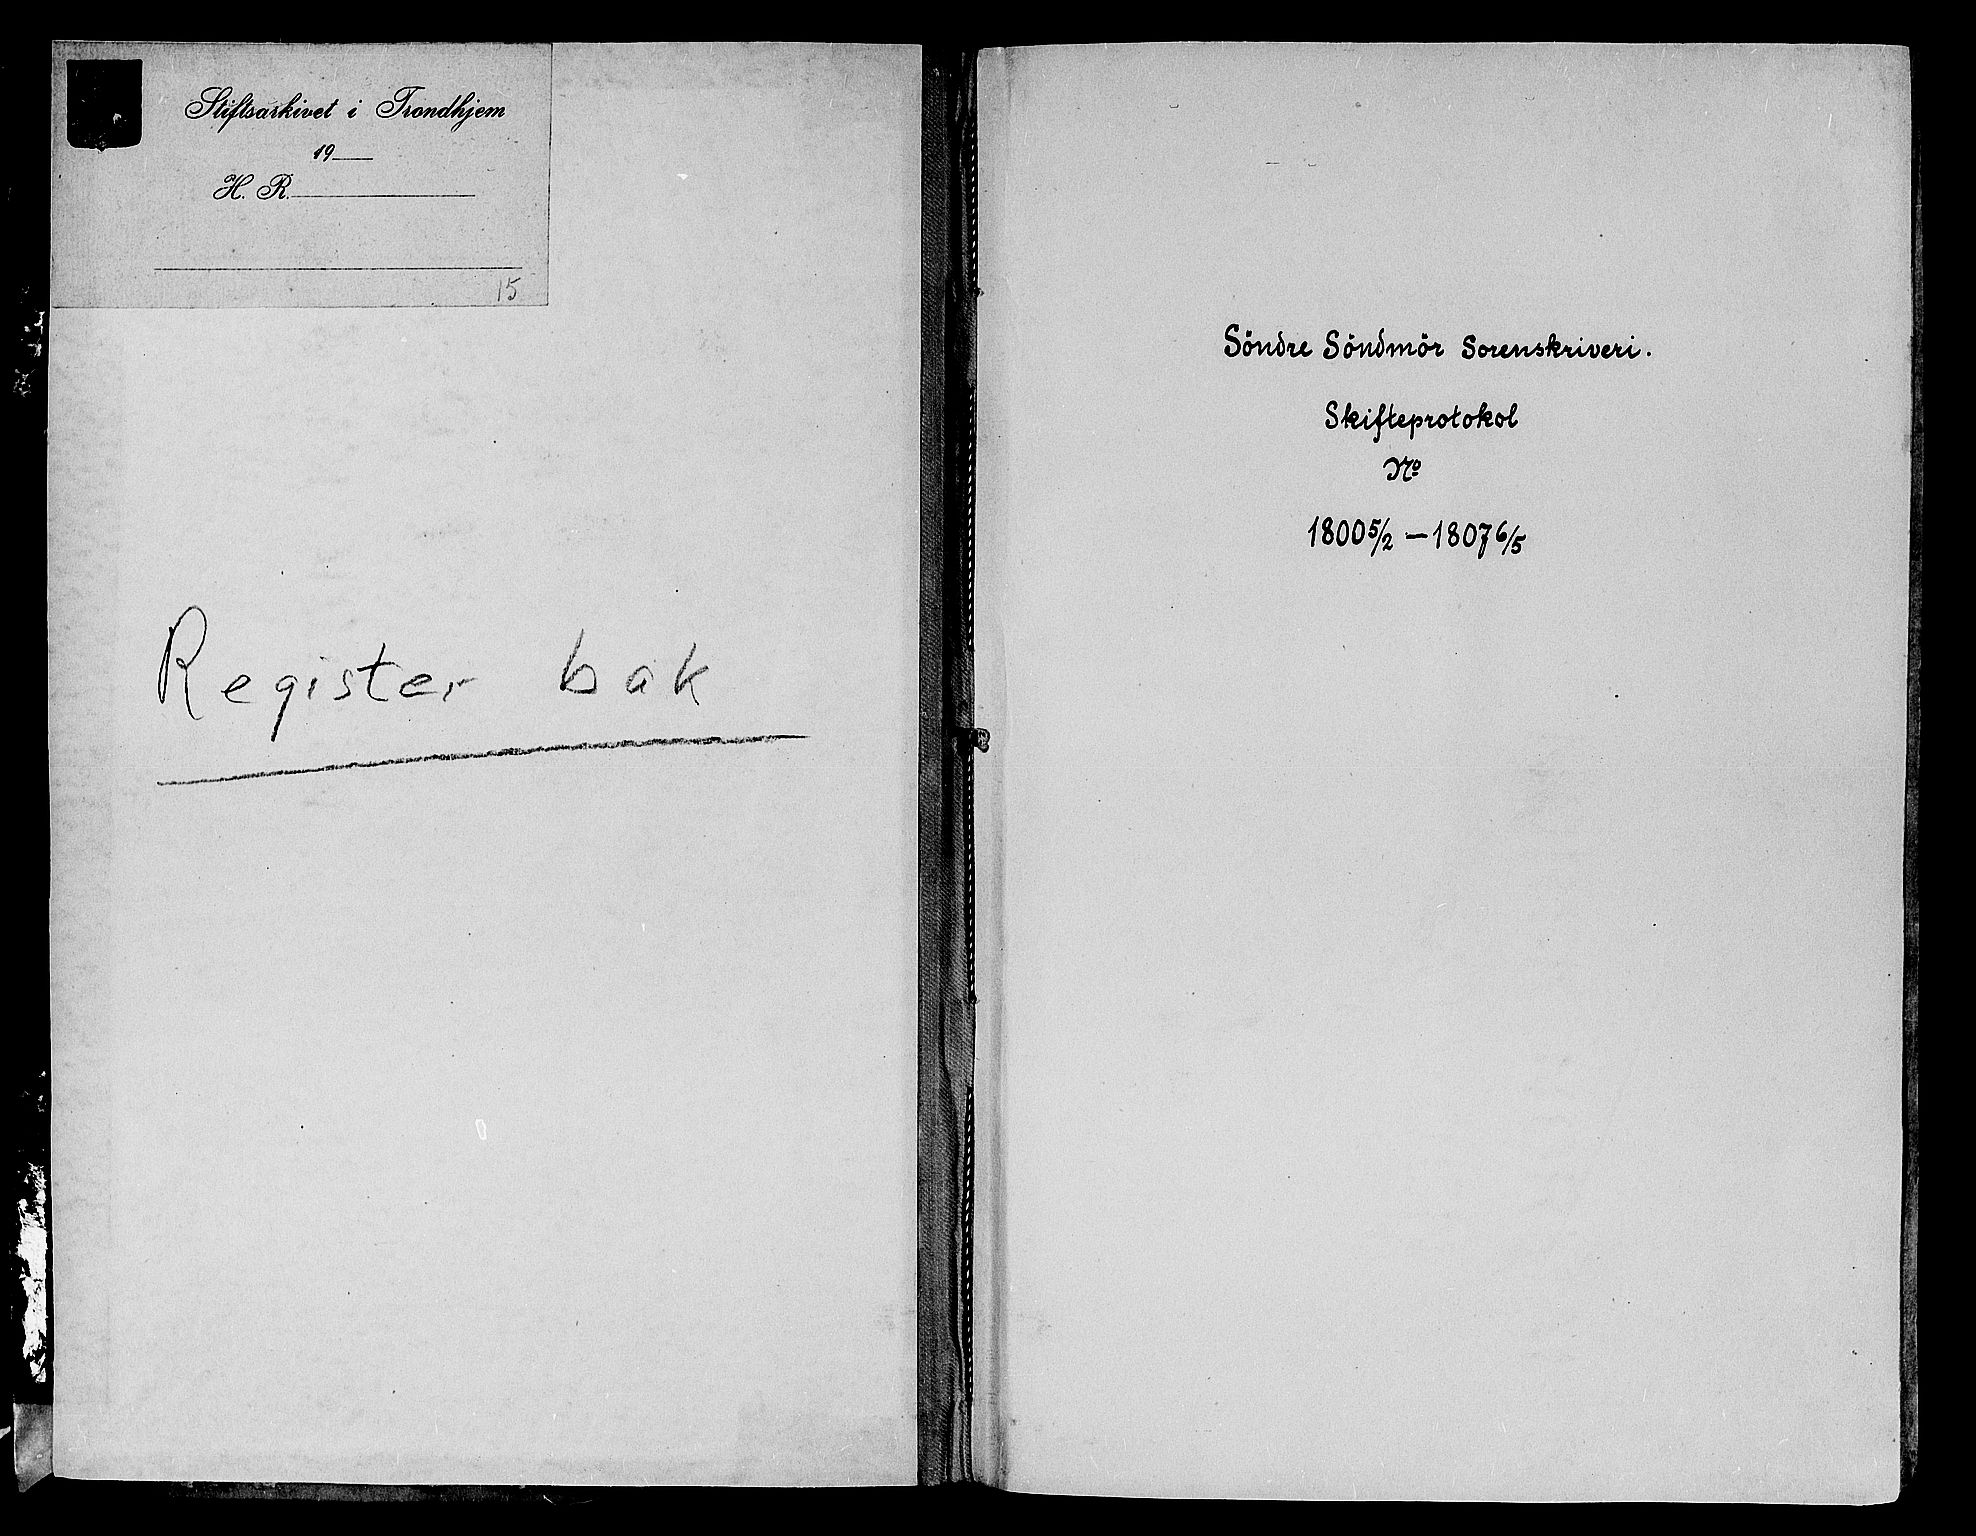 Stiftsarkivet i Trondhjem
19
H. R.
15
Register bak
Söndre Söndmör Sorenskriveri.
Skifteprotokol
No
1800 5/2 — 1807 6/5